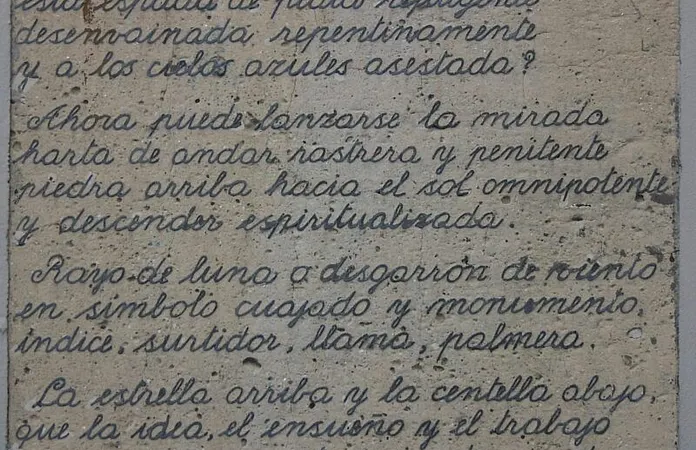 esta espada de plata refulgente
desenvainada repentinamente
y a los cielos azules asestada?
Ahora puede lanzarse la mirada
harta de andar rastrera y penitente
piedra arriba hacia el sol omnipotente
y descender espiritualizada.
Rayo de luna o desgarrón de viento
en símbolo cuajado y monumento,
índice, surtidor, llama, palmera.
La estrella arriba y la centella abajo,
que la idea, el ensueño y el trabajo